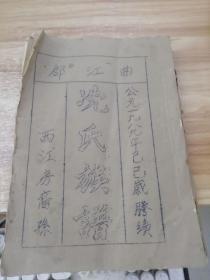 曲江郡
公元一九八九年己巳歲謄續
冼氏族譜
西江房裔孫